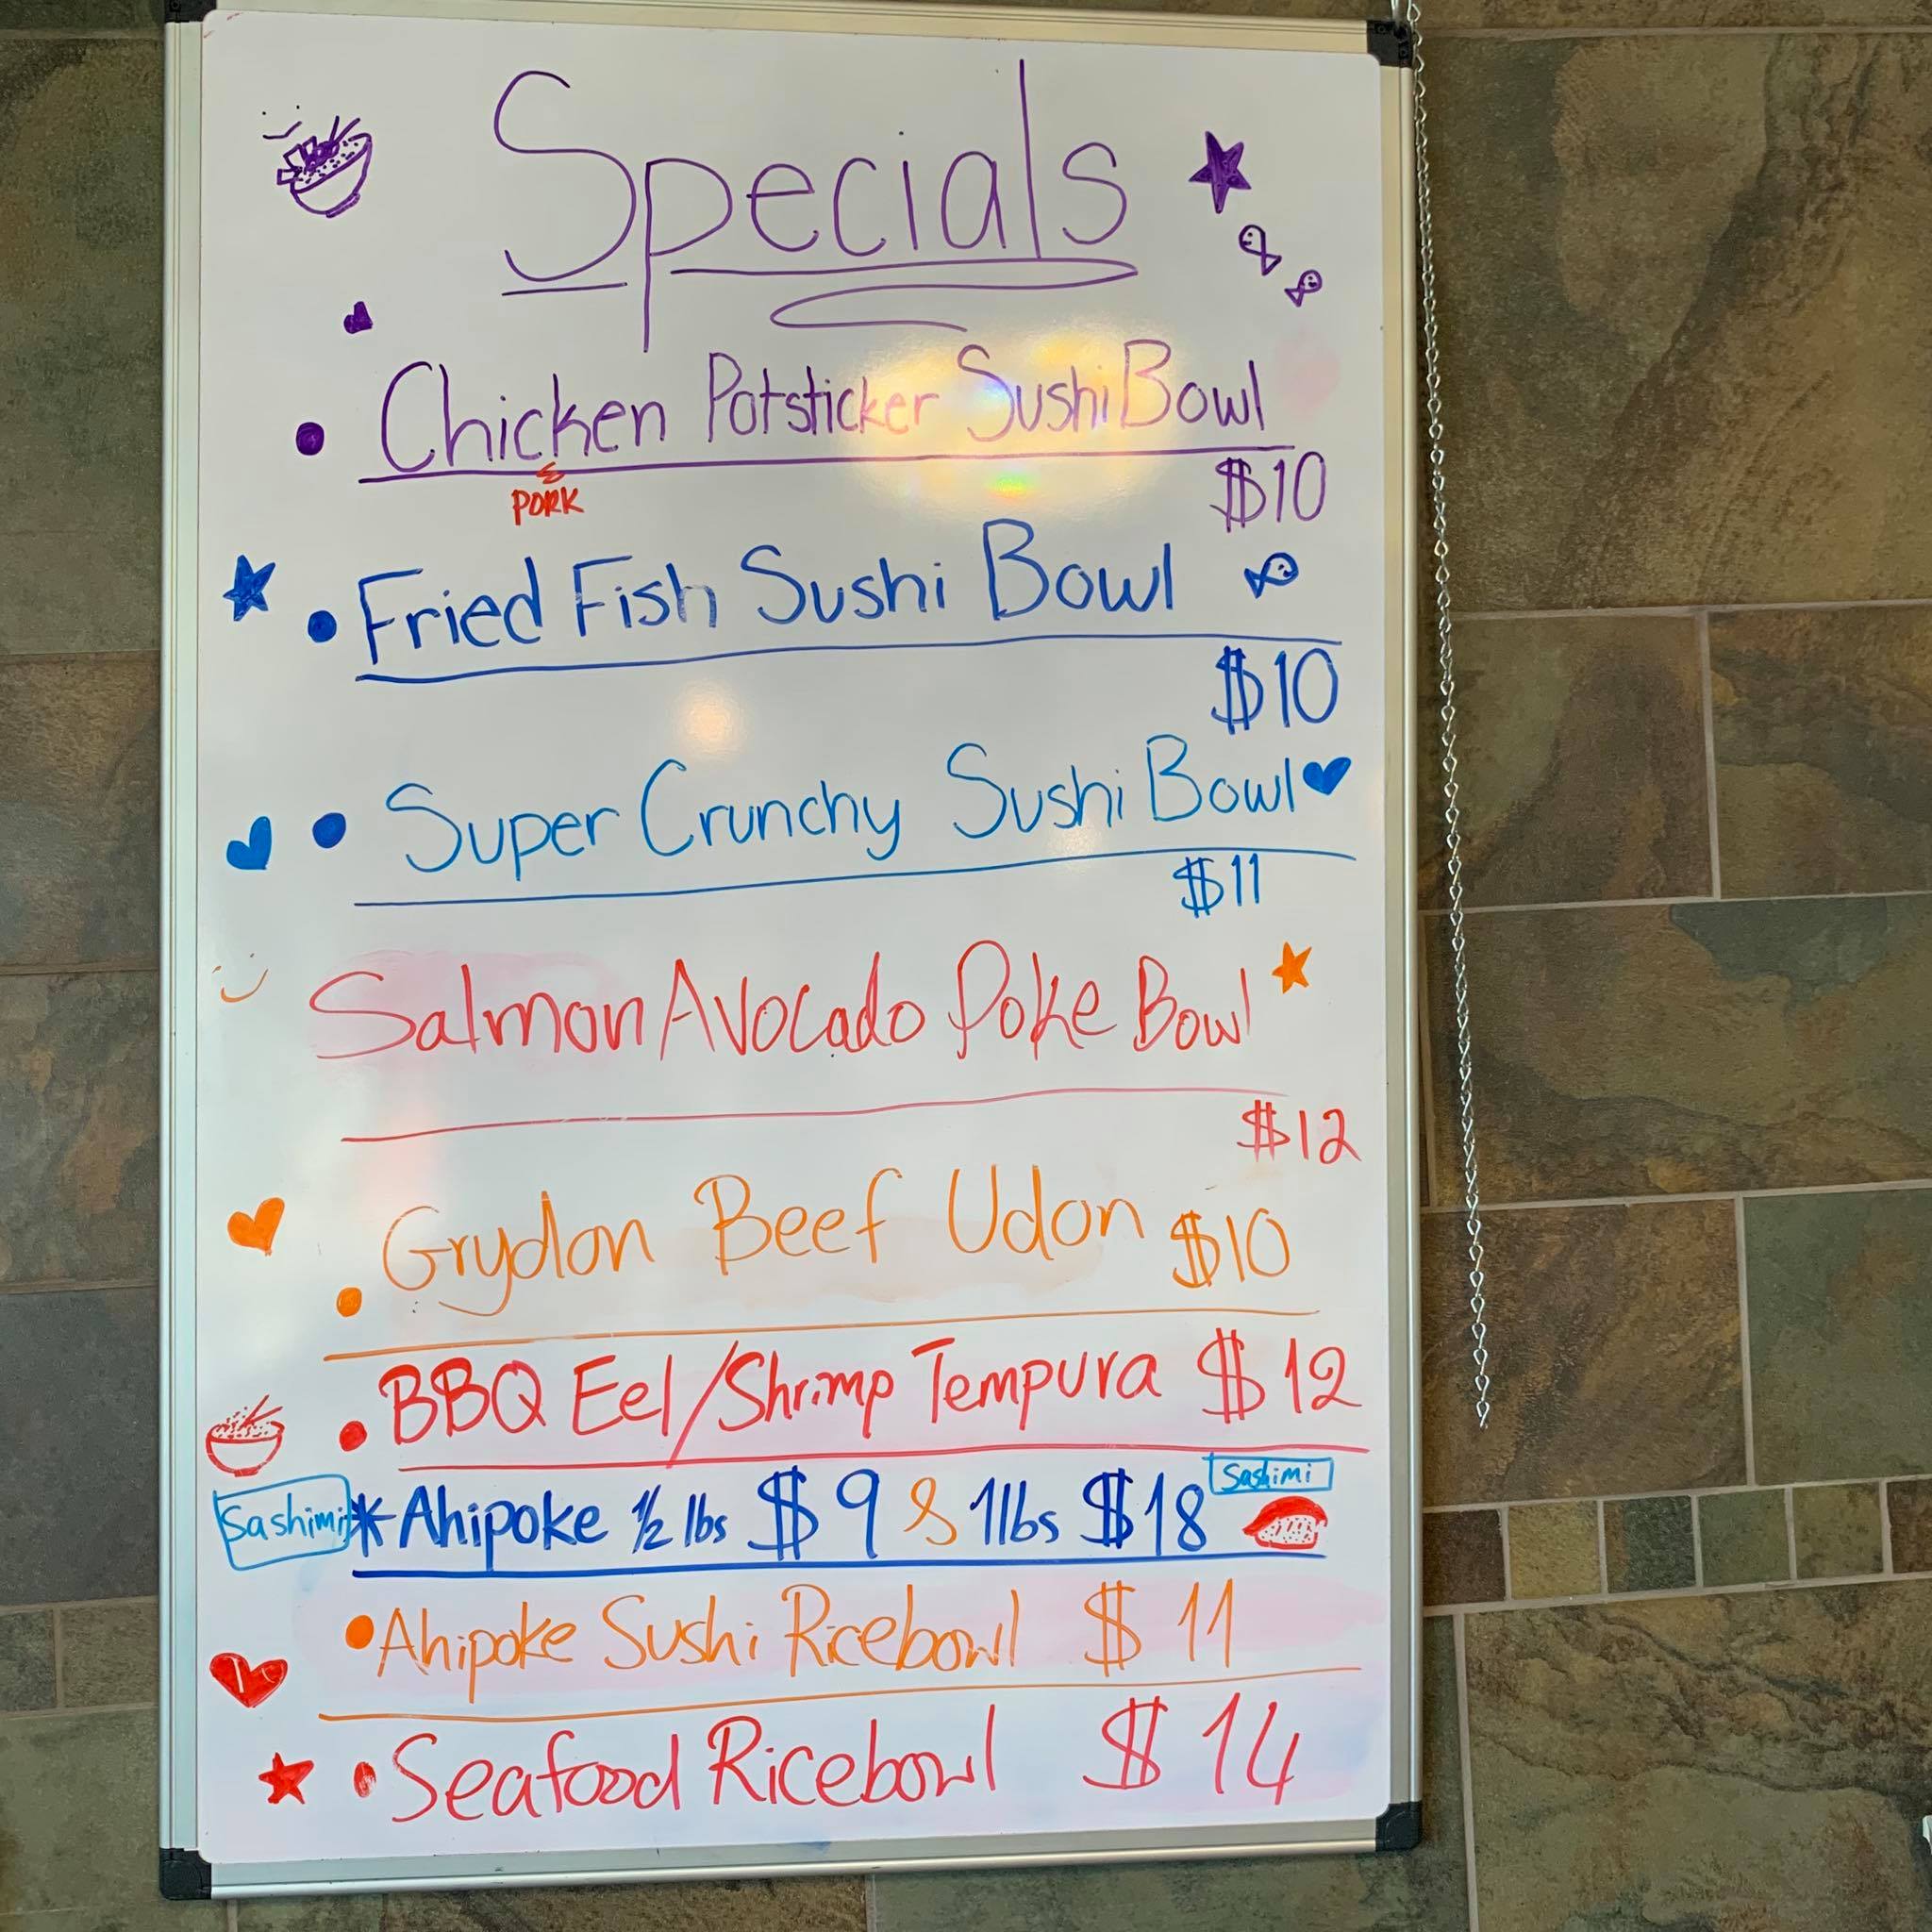 Specials
Chicken Potsticker Sushi Bowl
& PORK
$10
Fried Fish Sushi Bowl
$10
Super Crunchy Sushi Bowl
$11
Salmon Avocado Poke Bowl
$12
Grydon Beef Udon $10
BBQ Eel/Shrimp Tempura $12
Sashimi * Ahipoke 1/2 lbs $9 & 1lbs $18 Sashimi
Ahipoke Sushi Ricebowl $11
Seafood Ricebowl $14